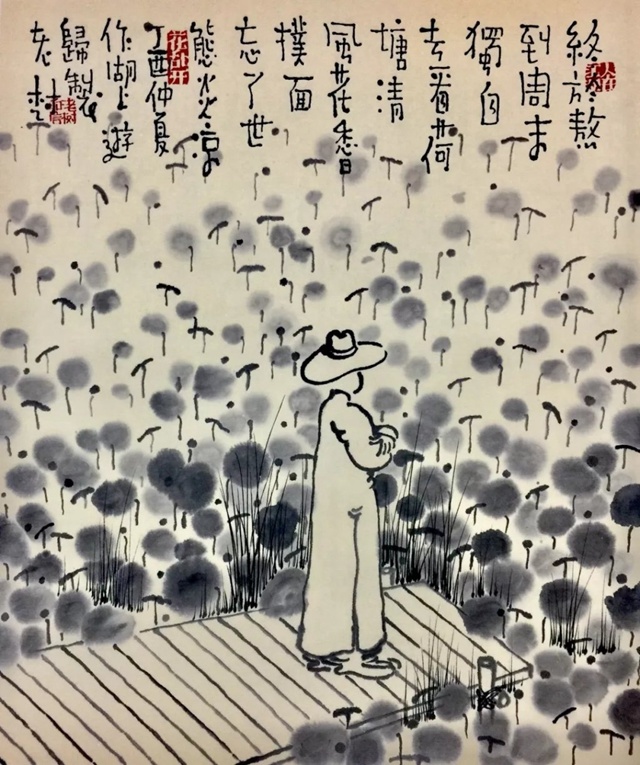 終於熬
到周末
獨自
去看荷
塘清
風花香
撲面
忘了世
態炎涼
花乱开
丁酉仲夏
作湖上遊
歸製
老樹